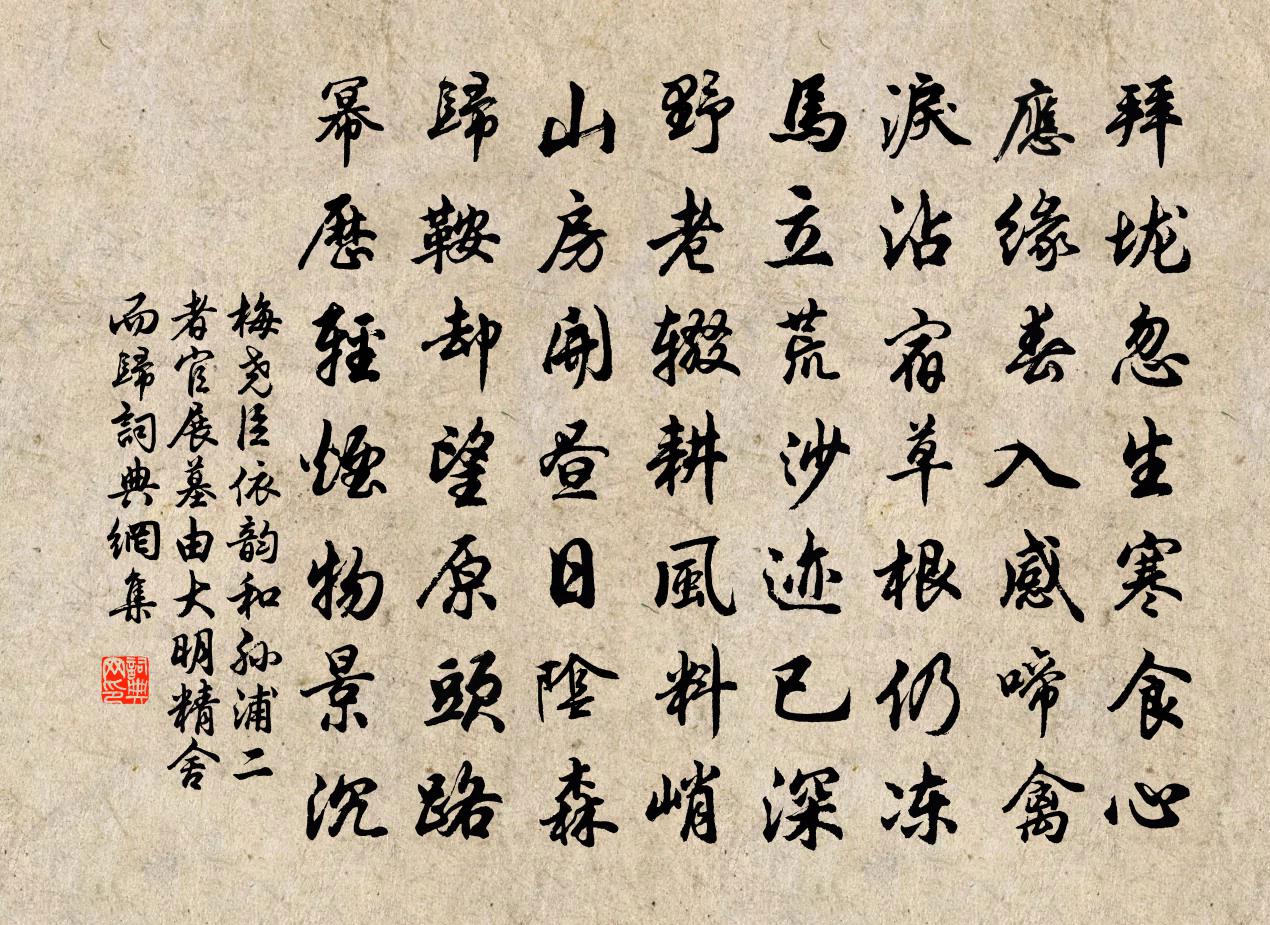 拜垅忽生寒食心
應緣春入感啼禽
淚沾宿草根仍冻
馬立荒沙迹已深
野老辍耕風料峭
山房開晝日陰森
歸鞍却望原頭路
幂歷輕煙物景沉
梅尧臣依韵和孙浦二
者官展墓由大明精舍
而歸詞典網集
詞典
网印